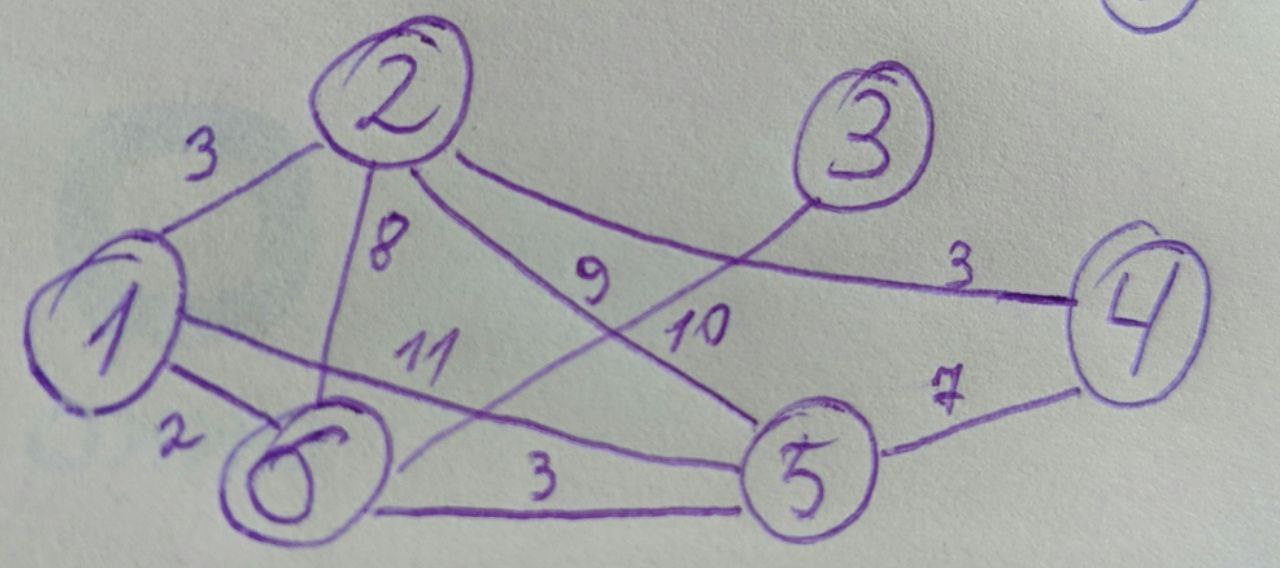 2
3
3
8
9
3
1
11
10
4
7
2
6
3
5